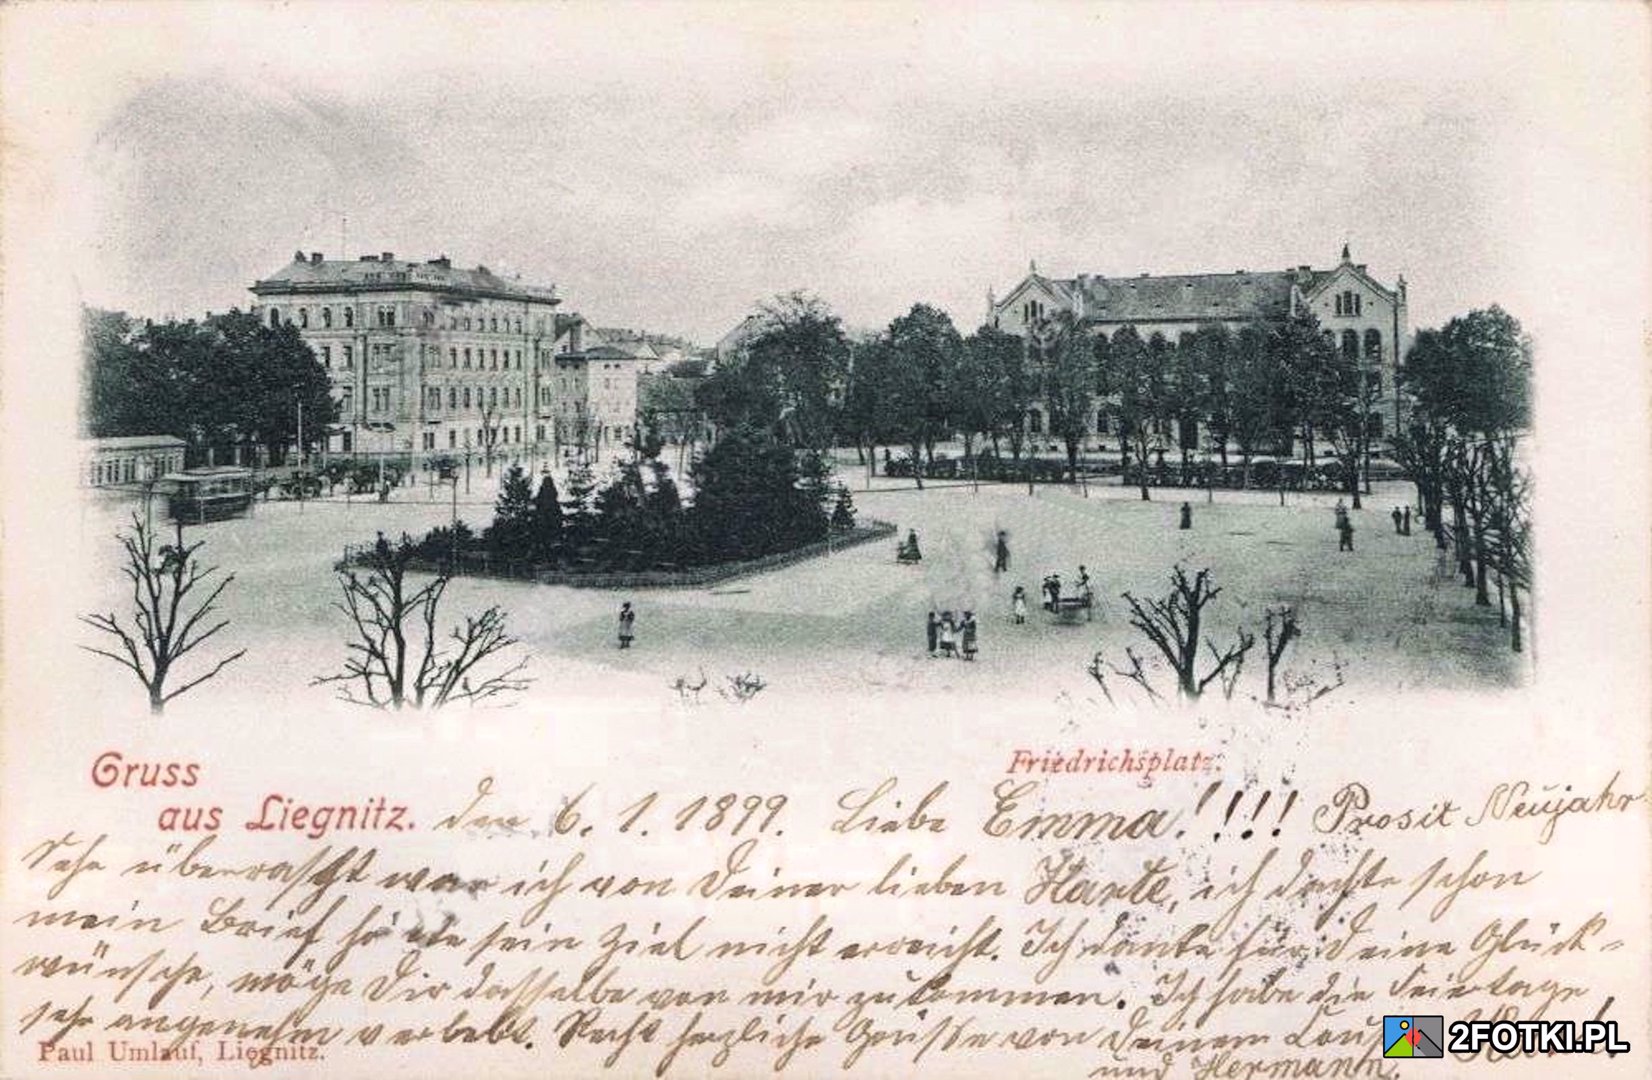 Friedrichsplatz.
Gruss
aus Liegnitz.
den 6. 1. 1899. Liebe Emma!!!! Prosit Neujahr
Sehr überrascht war ich von Deiner lieben Karte, ich dachte schon
mein Brief hätte sein Ziel nicht erreicht. Ich danke für Deine Glück-
wünsche, möge Dir dasselbe von mir zukommen. Ich habe die Feiertage
sehr angenehm verlebt. Recht herzliche Grüße von Deinem
und Hermann.
Paul Umlauf, Liegnitz.
2FOTKI.PL